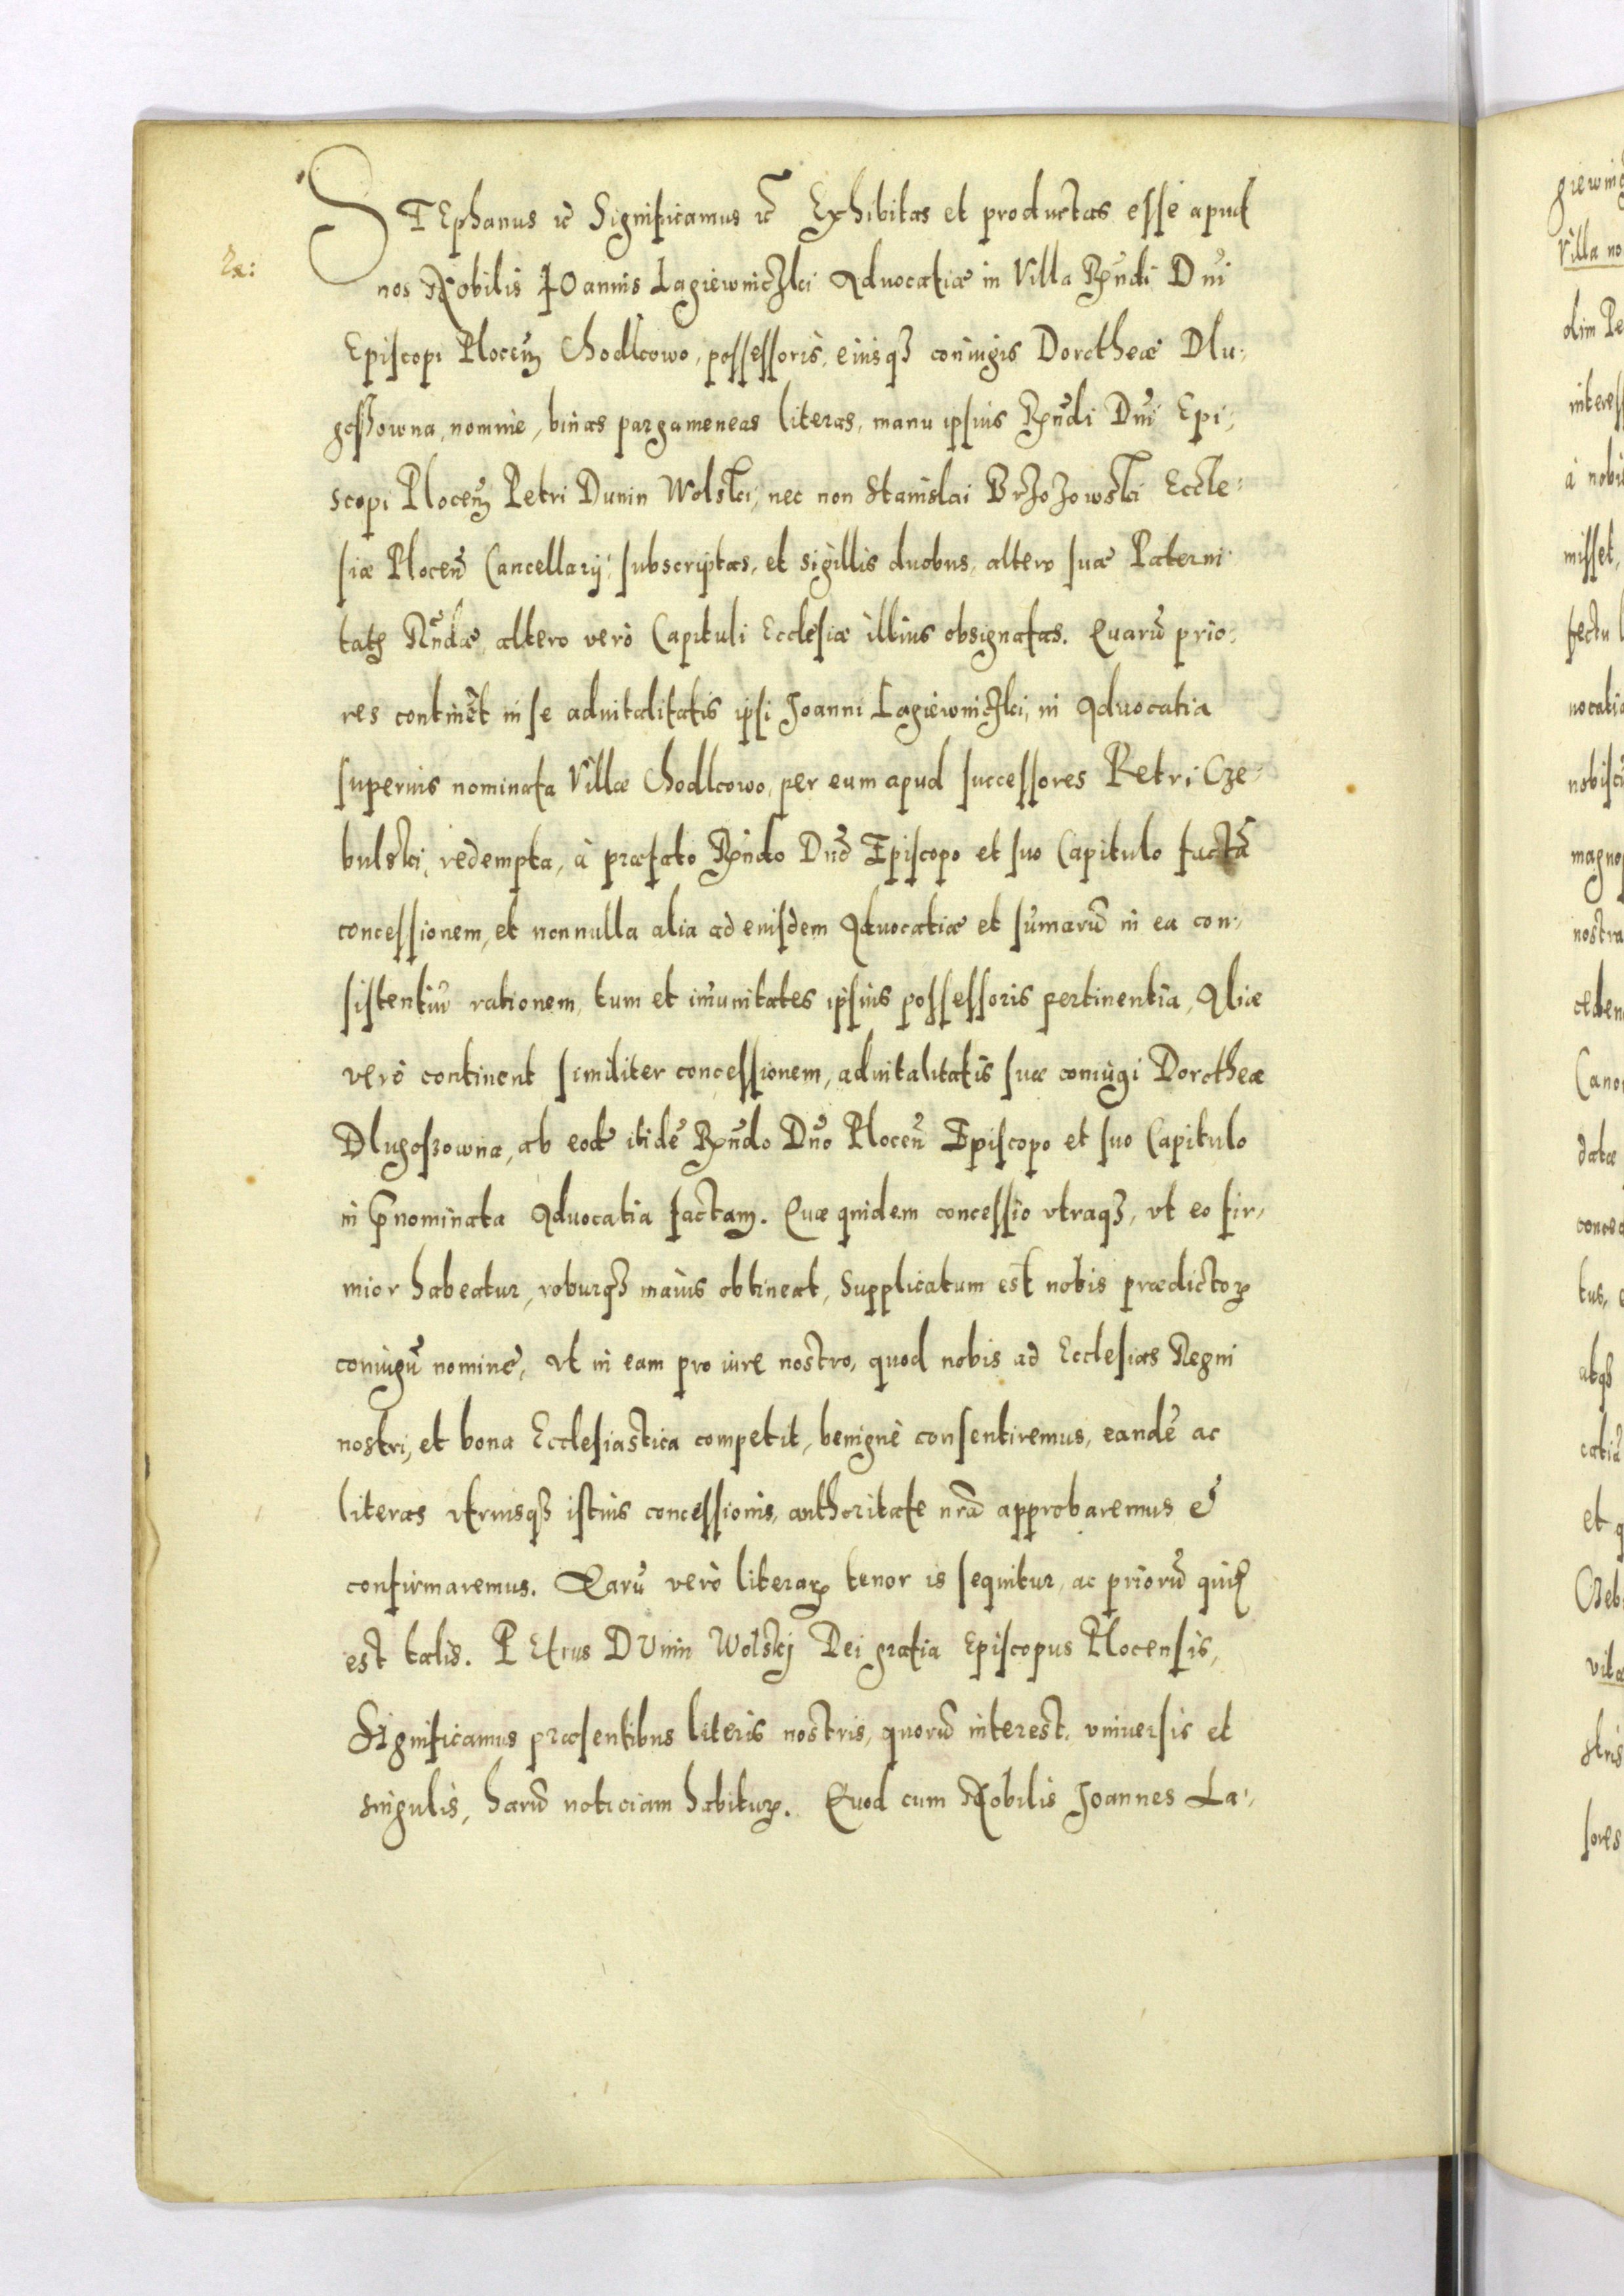 STEphanus &c̃ Significamus &c̃ Exhibitas et productas esse apud
Ex:
nos Nobilis IOannis Lagiewniczki Aduocatiæ in Villa Rṇdi Dni
Episcopi Plocen̄ Chodkowo, possessoris, eiusqȝ coniugis Dorotheæ Dlu-
gossowna, nomine, binas pargameneas literas, manu ipsius Rṇdi Dni Epi-
scopi Plocen̄ Petri Dunin Wolski, nec non Stanislai Brzozowski Eccle-
siæ Plocen̄ Cancellarij, subscriptas, et sigillis duobus, altero suæ Paterni
tatꝭ Rn̄dæ, altero verò Capituli Ecclesiæ illius obsignatas. Quarū prio-
res continēt in se aduitalitatis ipsi Joanni Lagiewniczki, in Aduocatia
superius nominata Villæ Chodkowo, per eum apud successores Petri Cze-
bulski, redempta, à præfato Rn̄do Dn̄o Episcopo et suo Capitulo factā
concessionem, et nonnulla alia ad eiusdem Aduocatiæ et sūmarū in ea con-
sistentiū rationem, tum et im̄unitates ipsius possessoris pertinentia, Aliæ
verò continent similiter concessionem, aduitalitatis suæ coniugi Dorotheæ
Dlugoszowna, ab eodē itidē Rn̄do Dn̄o Plocen̄ Episcopo et suo Capitulo
in p̄nominata Aduocatia factam. Quæ quidem concessio vtraqȝ, vt eo fir-
mior habeatur, roburqȝ maius obtineat, Supplicatum est nobis prædictoꝝ
coniugū nominē, vt in eam pro iure nostro, quod nobis ad Ecclesias Regni
nostri, et bona Ecclesiastica competit, benignè consentiremus, eandē ac
literas vtriusqȝ istius concessionis, authoritate nrā approbaremus &
confirmaremus. Earū verò literaꝝ tenor is sequitur, ac priorū quiꝭ
est talis. PEtrus DVnin Wolskj Dei gratia Episcopus Plocensis,
Significamus præsentibus literis nostris, quorū interest, vniuersis et
singulis, harū noticiam habituꝝ. Quod cum Nobilis Joannes La-